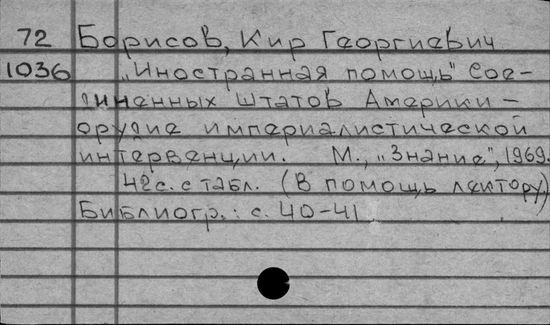 72 Борисов, Кир Георгиевич
1036 „Иностранная помощь" Сое-
диненных Штатов Америки –
орудие империалистической
интервенции. М., „Знание", 1969.
42 с. с табл. (В помощь лектору)
Библиогр.: с. 40-41